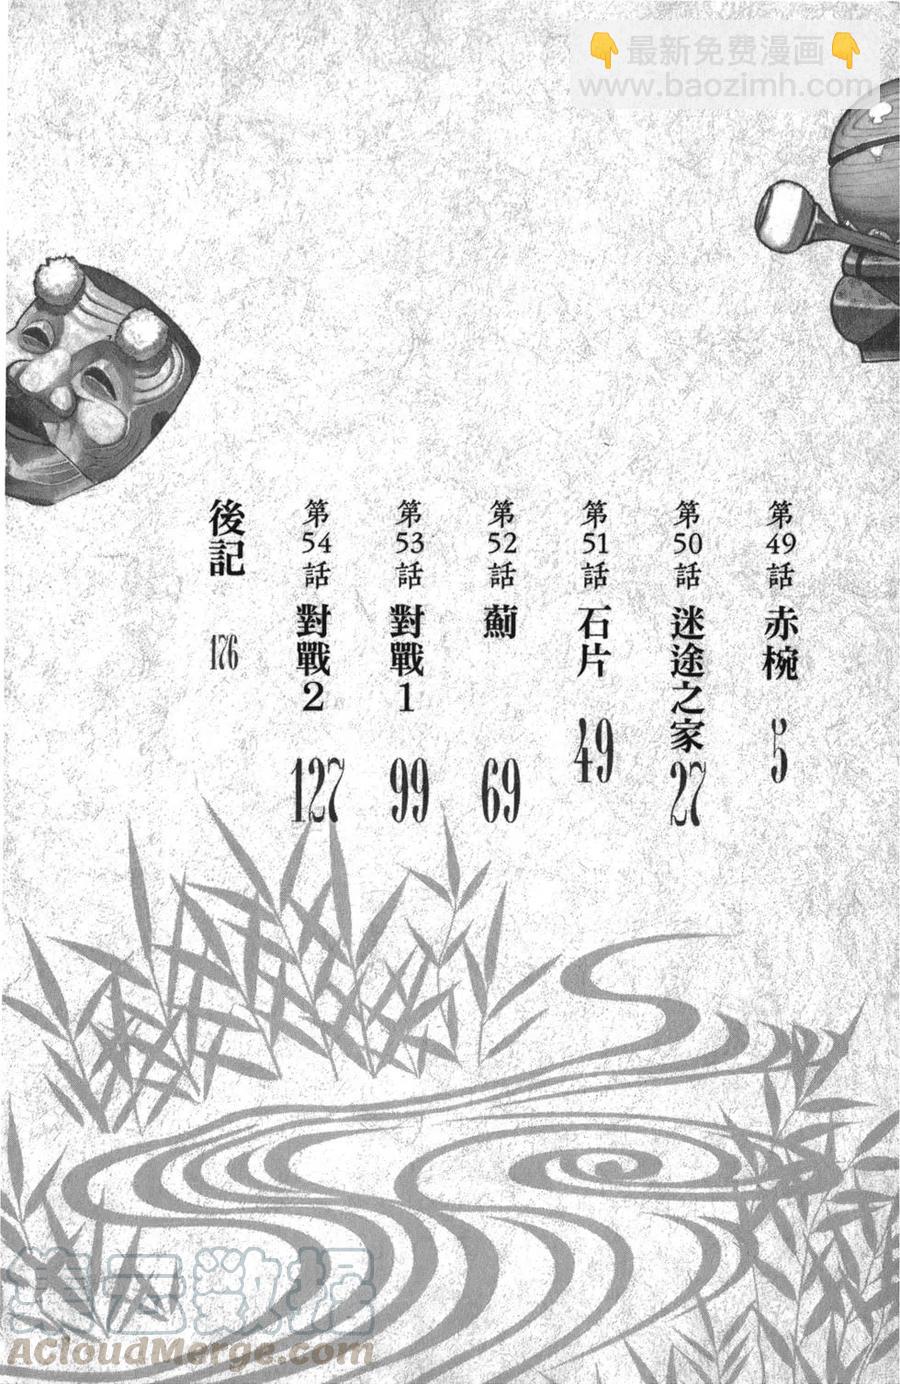 👇最新免费漫画👇
www.baozimh.org
第49話 赤椀 5
第50話 迷途之家 27
第51話 石片 49
第52話 薊 69
第53話 對戰1 99
第54話 對戰2 127
後記 176
集云数据
AcloudMerge.com